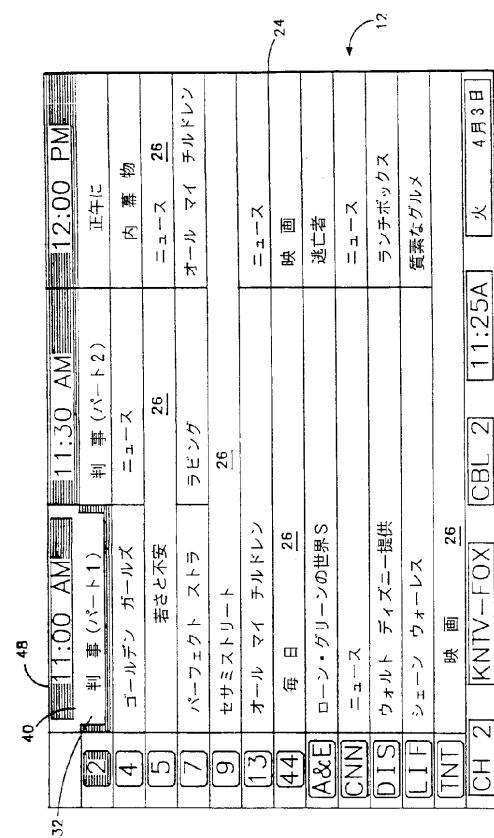 12
24
48
40
32
11:00 AM 11:30 AM 12:00 PM
2 判 事 (パート1) 判 事 (パート2) 正午に
4 ゴールデン ガールズ ニュース 内 幕 物
5 若さと不安 26 ニュース 26
7 パーフェクト ストラ ラビング オール マイ チルドレン
9 セサミストリート 26
13 オール マイ チルドレン ニュース
44 毎 日 26 映 画
A&E ローン・グリーンの世界S 逃亡者
CNN ニュース ニュース
DIS ウォルト ディズニー提供 ランチボックス
LIF シェーン ウォーレス 質素なグルメ
TNT 映 画 26
CH 2 KNTV-FOX CBL 2 11:25A 火 4月3日